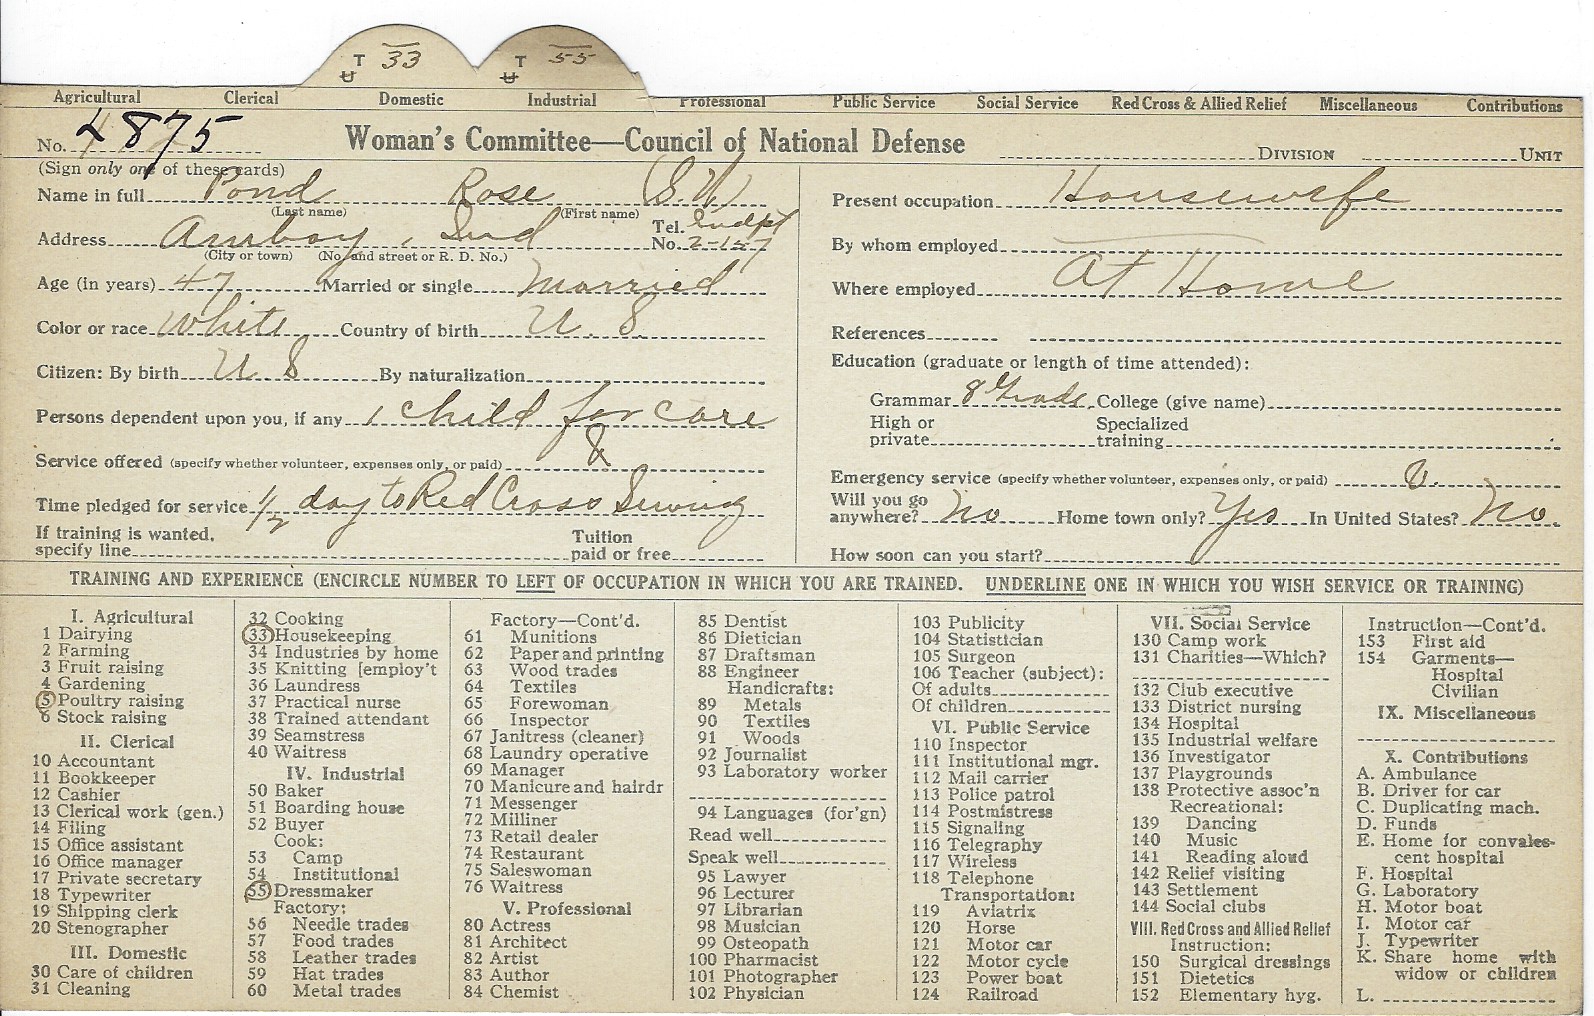 T 33 T 55
U U
Agricultural Clerical Domestic Industrial Professional Public Service Social Service Red Cross & Allied Relief Miscellaneous Contributions
No. 4875 Woman's Committee—Council of National Defense DIVISION UNIT
(Sign only one of these cards)
Name in full Pond Rose (S.W)
(Last name) (First name)
Address Amboy, Ind Tel. No. Indpt 2-157
(City or town) (No. and street or R. D. No.)
Age (in years) 47 Married or single Married
Color or race White Country of birth U. S.
Citizen: By birth U S By naturalization
Persons dependent upon you, if any 1 child for care
Service offered (specify whether volunteer, expenses only, or paid)
Time pledged for service 1/2 day to Red Cross Sewing
If training is wanted, specify line Tuition paid or free
Present occupation Housewife
By whom employed
Where employed At Home
References
Education (graduate or length of time attended):
Grammar 8 Grade College (give name)
High or private Specialized training
Emergency service (specify whether volunteer, expenses only, or paid)
Will you go anywhere? No Home town only? Yes In United States? No.
How soon can you start?
TRAINING AND EXPERIENCE (ENCIRCLE NUMBER TO LEFT OF OCCUPATION IN WHICH YOU ARE TRAINED. UNDERLINE ONE IN WHICH YOU WISH SERVICE OR TRAINING)
I. Agricultural
1 Dairying
2 Farming
3 Fruit raising
4 Gardening
5 Poultry raising
6 Stock raising
II. Clerical
10 Accountant
11 Bookkeeper
12 Cashier
13 Clerical work (gen.)
14 Filing
15 Office assistant
16 Office manager
17 Private secretary
18 Typewriter
19 Shipping clerk
20 Stenographer
III. Domestic
30 Care of children
31 Cleaning
32 Cooking
33 Housekeeping
34 Industries by home
35 Knitting [employ't
36 Laundress
37 Practical nurse
38 Trained attendant
39 Seamstress
40 Waitress
IV. Industrial
50 Baker
51 Boarding house
52 Buyer
Cook:
53 Camp
54 Institutional
55 Dressmaker
Factory:
56 Needle trades
57 Food trades
58 Leather trades
59 Hat trades
60 Metal trades
Factory—Cont'd.
61 Munitions
62 Paper and printing
63 Wood trades
64 Textiles
65 Forewoman
66 Inspector
67 Janitress (cleaner)
68 Laundry operative
69 Manager
70 Manicure and hairdr
71 Messenger
72 Milliner
73 Retail dealer
74 Restaurant
75 Saleswoman
76 Waitress
V. Professional
80 Actress
81 Architect
82 Artist
83 Author
84 Chemist
85 Dentist
86 Dietician
87 Draftsman
88 Engineer
Handicrafts:
89 Metals
90 Textiles
91 Woods
92 Journalist
93 Laboratory worker
94 Languages (for'gn)
Read well
Speak well
95 Lawyer
96 Lecturer
97 Librarian
98 Musician
99 Osteopath
100 Pharmacist
101 Photographer
102 Physician
103 Publicity
104 Statistician
105 Surgeon
106 Teacher (subject):
Of adults
Of children
VI. Public Service
110 Inspector
111 Institutional mgr.
112 Mail carrier
113 Police patrol
114 Postmistress
115 Signaling
116 Telegraphy
117 Wireless
118 Telephone
Transportation:
119 Aviatrix
120 Horse
121 Motor car
122 Motor cycle
123 Power boat
124 Railroad
VII. Social Service
130 Camp work
131 Charities—Which?
132 Club executive
133 District nursing
134 Hospital
135 Industrial welfare
136 Investigator
137 Playgrounds
138 Protective assoc'n
Recreational:
139 Dancing
140 Music
141 Reading aloud
142 Relief visiting
143 Settlement
144 Social clubs
VIII. Red Cross and Allied Relief
Instruction:
150 Surgical dressings
151 Dietetics
152 Elementary hyg.
Instruction—Cont'd.
153 First aid
154 Garments—
Hospital
Civilian
IX. Miscellaneous
X. Contributions
A. Ambulance
B. Driver for car
C. Duplicating mach.
D. Funds
E. Home for convales-
cent hospital
F. Hospital
G. Laboratory
H. Motor boat
I. Motor car
J. Typewriter
K. Share home with
widow or children
L.